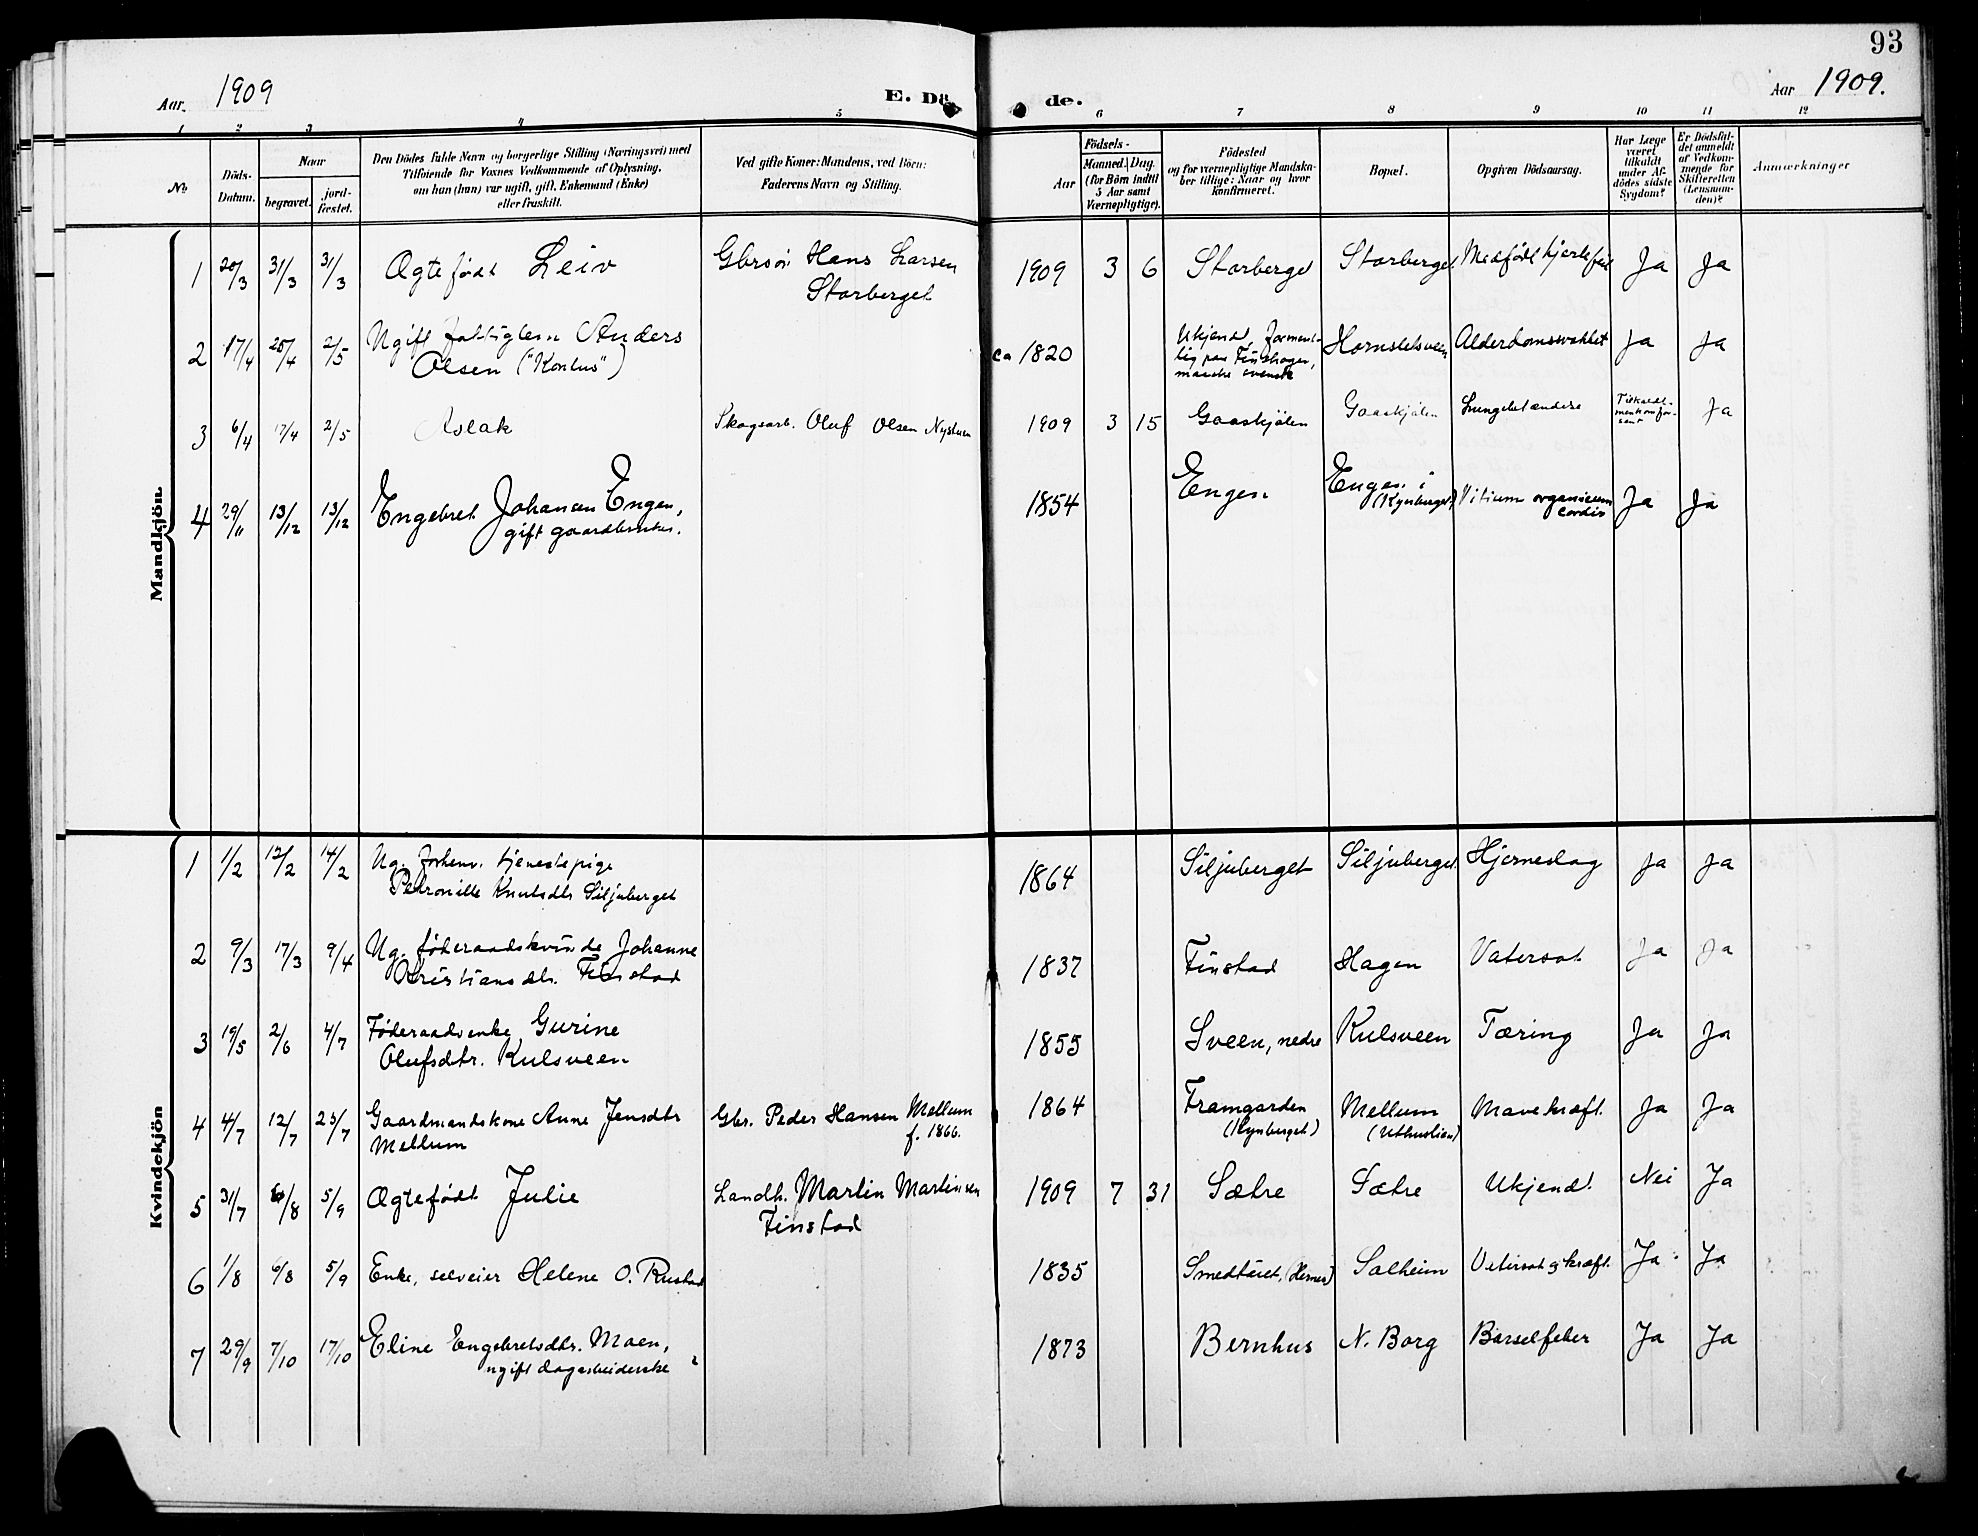 93
Aar. 1909
E. Dö de.
Aar 1909.
1 2 3 4 5 6 7 8 9 10 11 12
No
Döds-
Datum.
Naar
begravet.
jord-
fæstet.
Den Dödes fulde Navn og borgerlige Stilling (Næringsvei) med
Tilföiende for Voxnes Vedkommende af Oplysning,
om han (hun) var ugift, gift, Enkemand (Enke)
eller fraskilt.
Ved gifte Koner: Mandens, ved Börn:
Faderens Navn og Stilling.
Födsels-
Aar
Maaned. Dag.
(for Börn indtil
5 Aar samt
Værnepligtige).
Födested
og for værnepligtige Mandska-
ber tillige: Naar og hvor
konfirmeret.
Bopæl.
Opgiven Dödsaarsag.
Har Læge
været
tilkaldt
under Af-
dödes sidste
Sygdom?
Er Dödsfal-
det anmeldt
af Vedkom-
mende for
Skifteretten
(Lensman-
den)?
Anmærkninger
Mandkjön.
1 20/3 31/3 31/3 Ægtefødt Leiv Gbrsø. Hans Larsen
Storberget
1909 3 6 Storberget Storberget Medfødt hjertefeil Ja Ja
2 17/4 25/4 2/5 Ugift fattiglem Anders
Olsen ("Kontus")
ca 1820 Ukjendt, forment-
lig paa Finskogen,
maaske svensk
Hornsletsveen Alderdomssvakhet Ja Ja
3 6/4 17/4 2/5 Aslak Skogsarb. Oluf Olsen Nystuen
1909 3 15 Gaaskjölen Gaaskjölen Lungebetændelse Ja
4 29/11 13/12 13/12 Engebret Johansen Engen,
gift gaardbruker.
1854 Engen Engen i
(Kynberget) Vitium organicum
cordis Ja Ja
Kvindekjön
1 1/2 12/2 14/2 Ug. forhenv. tjenestepige
Petronille Knutsdtr Siljuberget
1864 Siljuberget Siljuberget Hjerneslag Ja Ja
2 9/3 17/3 9/4 Ug. føderaadskvinde Johanne
Kristiansdtr. Finstad
1837 Finstad Hagen Vatersot Ja Ja
3 19/5 2/6 4/7 Føderaadsenke Gurine
Olufsdtr. Kulsveen
1855 Sveen, nedre Kulsveen Tæring Ja Ja
4 4/7 12/7 25/7 Gaardmandskone Anne Jensdtr
Mellum
Gbr. Peder Hansen Mellum
f. 1866.
1864 Framgarden
(Kynberget)
Mellum
(Uthuslien)
Mavekræft. Ja Ja
5 31/7 6/8 5/9 Ægtefødt Julie Landh. Martin Martinsen
Finstad
1909 7 31 Sætre Sætre Ukjendt. Nei Ja
6 1/8 6/8 5/9 Enke, selveier Helene O. Rustad
1835 Smedtaret, (Hernes) Solheim Vatersot og kræft. Ja Ja
7 29/9 7/10 17/10 Eline Engebretsdtr. Moen,
ugift dagarbeiderske
1873 Bernhus N. Borg Barselfeber Ja Ja